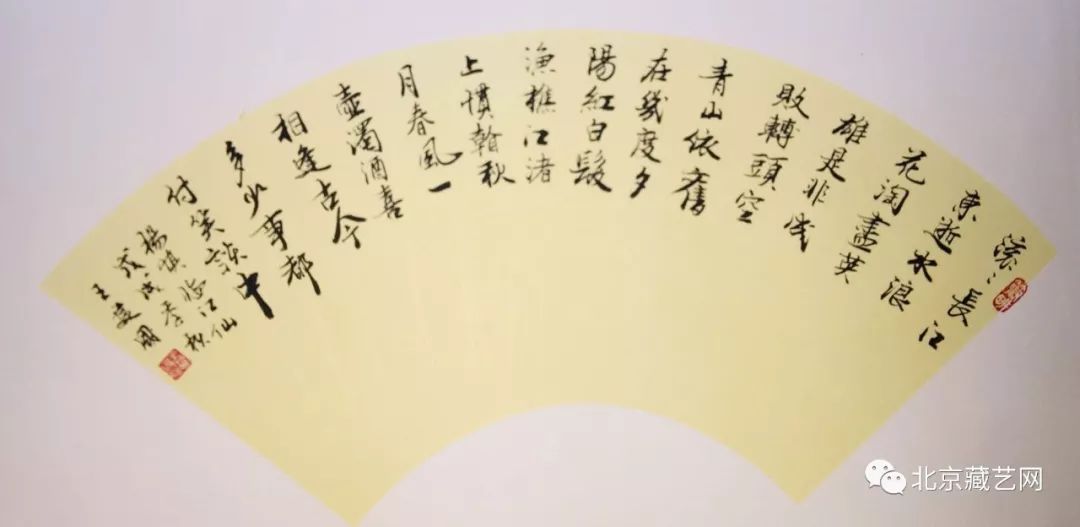 滚〻長江
東逝水浪
花淘盡英
雄是非成
敗轉頭空
青山依舊
在幾度夕
陽紅白髮
漁樵江渚
上慣看秋
月春風一
壺濁酒喜
相逢古今
多少事都
付笑談中
楊慎臨江仙
戊戌季秋
王
北京藏艺网